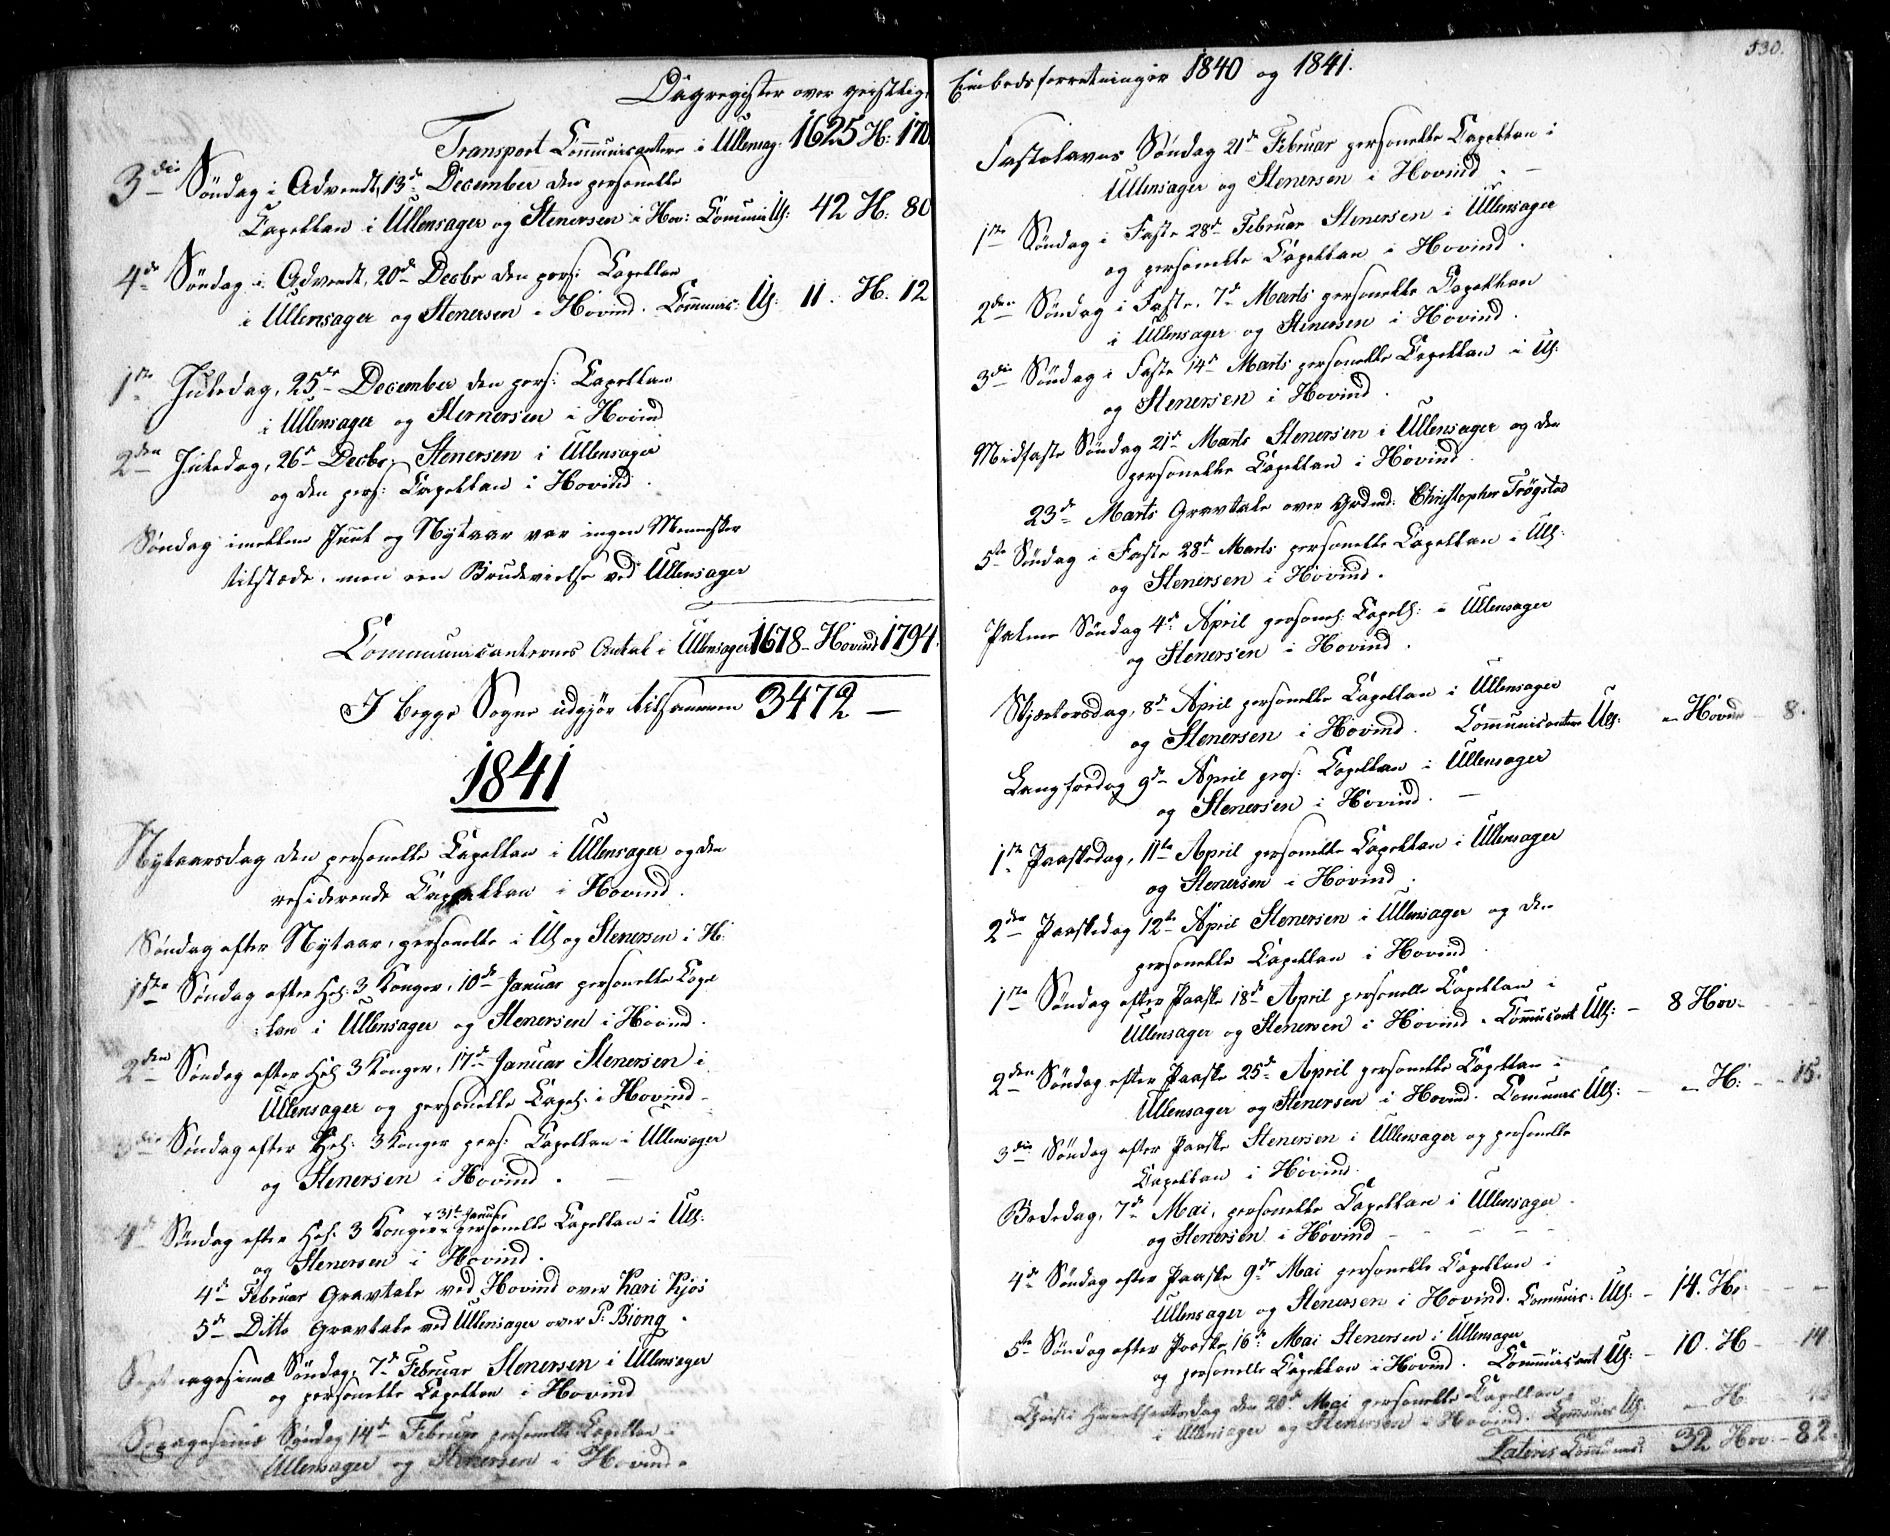 Dagregister over geistlig
Transport Communicantere i Ullensag: 1625 H: 170
3die Søndag i Advendt, 13de December den personelle
Capellan i Ullensager og Stenersen i Hov: Communi Ull: 42 H: 80
4de Søndag i Advendt, 20de Decbr den pers: Capellan
i Ullensager og Stenersen i Hovind. Communic: Ull: 11. H. 12
1ste Juledag, 25de December den pers: Capellan
i Ullensager og Stenersen i Hovind
2den Juledag, 26de Decbr, Stenersen i Ullensager
og den pers: Capellan i Hovind.
Søndag imellem Juul og Nÿtaar var ingen Mennesker
tilstæde, men een Brudevielse ved Ullensager
Communicanternes Antal i Ullensager 1678 - Hovind 1794.
I begge Sogne udgjør tilsammen 3472 —
1841
Nÿtaarsdag den personelle Capellan i Ullensager og den
residerende Capellan i Hovind.
Søndag efter Nÿtaar, personelle i Ull og Stenersen i H:
1ste Søndag efter Hel: 3 Konger, 10de Januar personelle Capel
lan i Ullensager og Stenersen i Hovind.
2den Søndag efter Hel 3 Konger, 17de Januar Stenersen i
Ullensager og personelle Capel: i Hovind -
3die Søndag efter Hel: 3 Konger pers: Capellan i Ullensager
og Stenersen i Hovind. —
+ 31te Januar
4de Søndag efter Hel: 3 Konger + personelle Capellan i Ull:
og Stenersen i Hovind.
4de Februar Gravtale ved Hovind over Kari Kjos
5de Ditto Gravtale ved Ullensager over P: Biong.
Septuagesimæ Søndag, 7de Februar Stenersen i Ullensager
og personelle Capellan i Hovind
Sexagesimæ Søndag 14de Februar personelle Capellan i
Ullensager og Stenersen i Hovind.
530.
Embedsforretninger 1840 og 1841.
Fastelavns Søndag 21de Februar personelle Capellan i
Ullensager og Stenersen i Hovind. —
1ste Søndag i Faste 28de Februar Stenersen i Ullensager
og personelle Capellan i Hovind.
2den Søndag i Faste, 7de Marts personelle Capellan
i Ullensager og Stenersen i Hovind.
3die Søndag i Faste 14de Marts personelle Capellan i Ull:
og Stenersen i Hovind.
Midfaste Søndag 21de Marts Stenersen i Ullensager og den
personelle Capellan i Hovind.
23de Marts Gravtale over Grdmd: Christopher Trøgstad
5te Søndag i Faste 28de Marts personelle Capellan i Ull:
og Stenersen i Hovind.
Palme Søndag 4de April personel: Capell: i Ullensager
og Stenersen i Hovind.
Skjærtorsdag, 8de April personelle Capellan i Ullensager
og Stenersen i Hovind. Communicantere Ull: - Hovind - 8.
Langfredag 9de April pers: Capellan i Ullensager
og Stenersen i Hovind. —
1ste Paaskedag, 11te April personelle Capellan i Ullensager
og Stenersen i Hovind.
2den Paaskedag 12te April Stenersen i Ullensager og den
personelle Capellan i Hovind.
1ste Søndag efter Paaske 18de April personelle Capellan i
Ullensager og Stenersen i Hovind. Communicant Ull: - 8 Hov -
2den Søndag efter Paaske 25de April personelle Capellan i
Ullensager og Stenersen i Hovind. Communic Ull: - - H: - - 15.
3die Søndag efter Paaske Stenersen i Ullensager og personelle
Capellan i Hovind.
Bededag, 7de Mai, personelle Capellan i Ullensager.
og Stenersen i Hovind - - - -
4de Søndag efter Paaske 9de Mai personelle Capellan i
Ullensager og Stenersen i Hovind. Communic: Ull: - 14. H: - -
5te Søndag efter Paaske, 16de Mai Stenersen i Ullensager
og personelle Capellan i Hovind. Communicant Ull: - 10. H - 14
Christi Himmelfartsdag den 20de Mai personelle Capellan
i Ullensager og Stenersen i Hovind. Communic Ull. - H
Lateris Communic: 32 Hov: - 82.